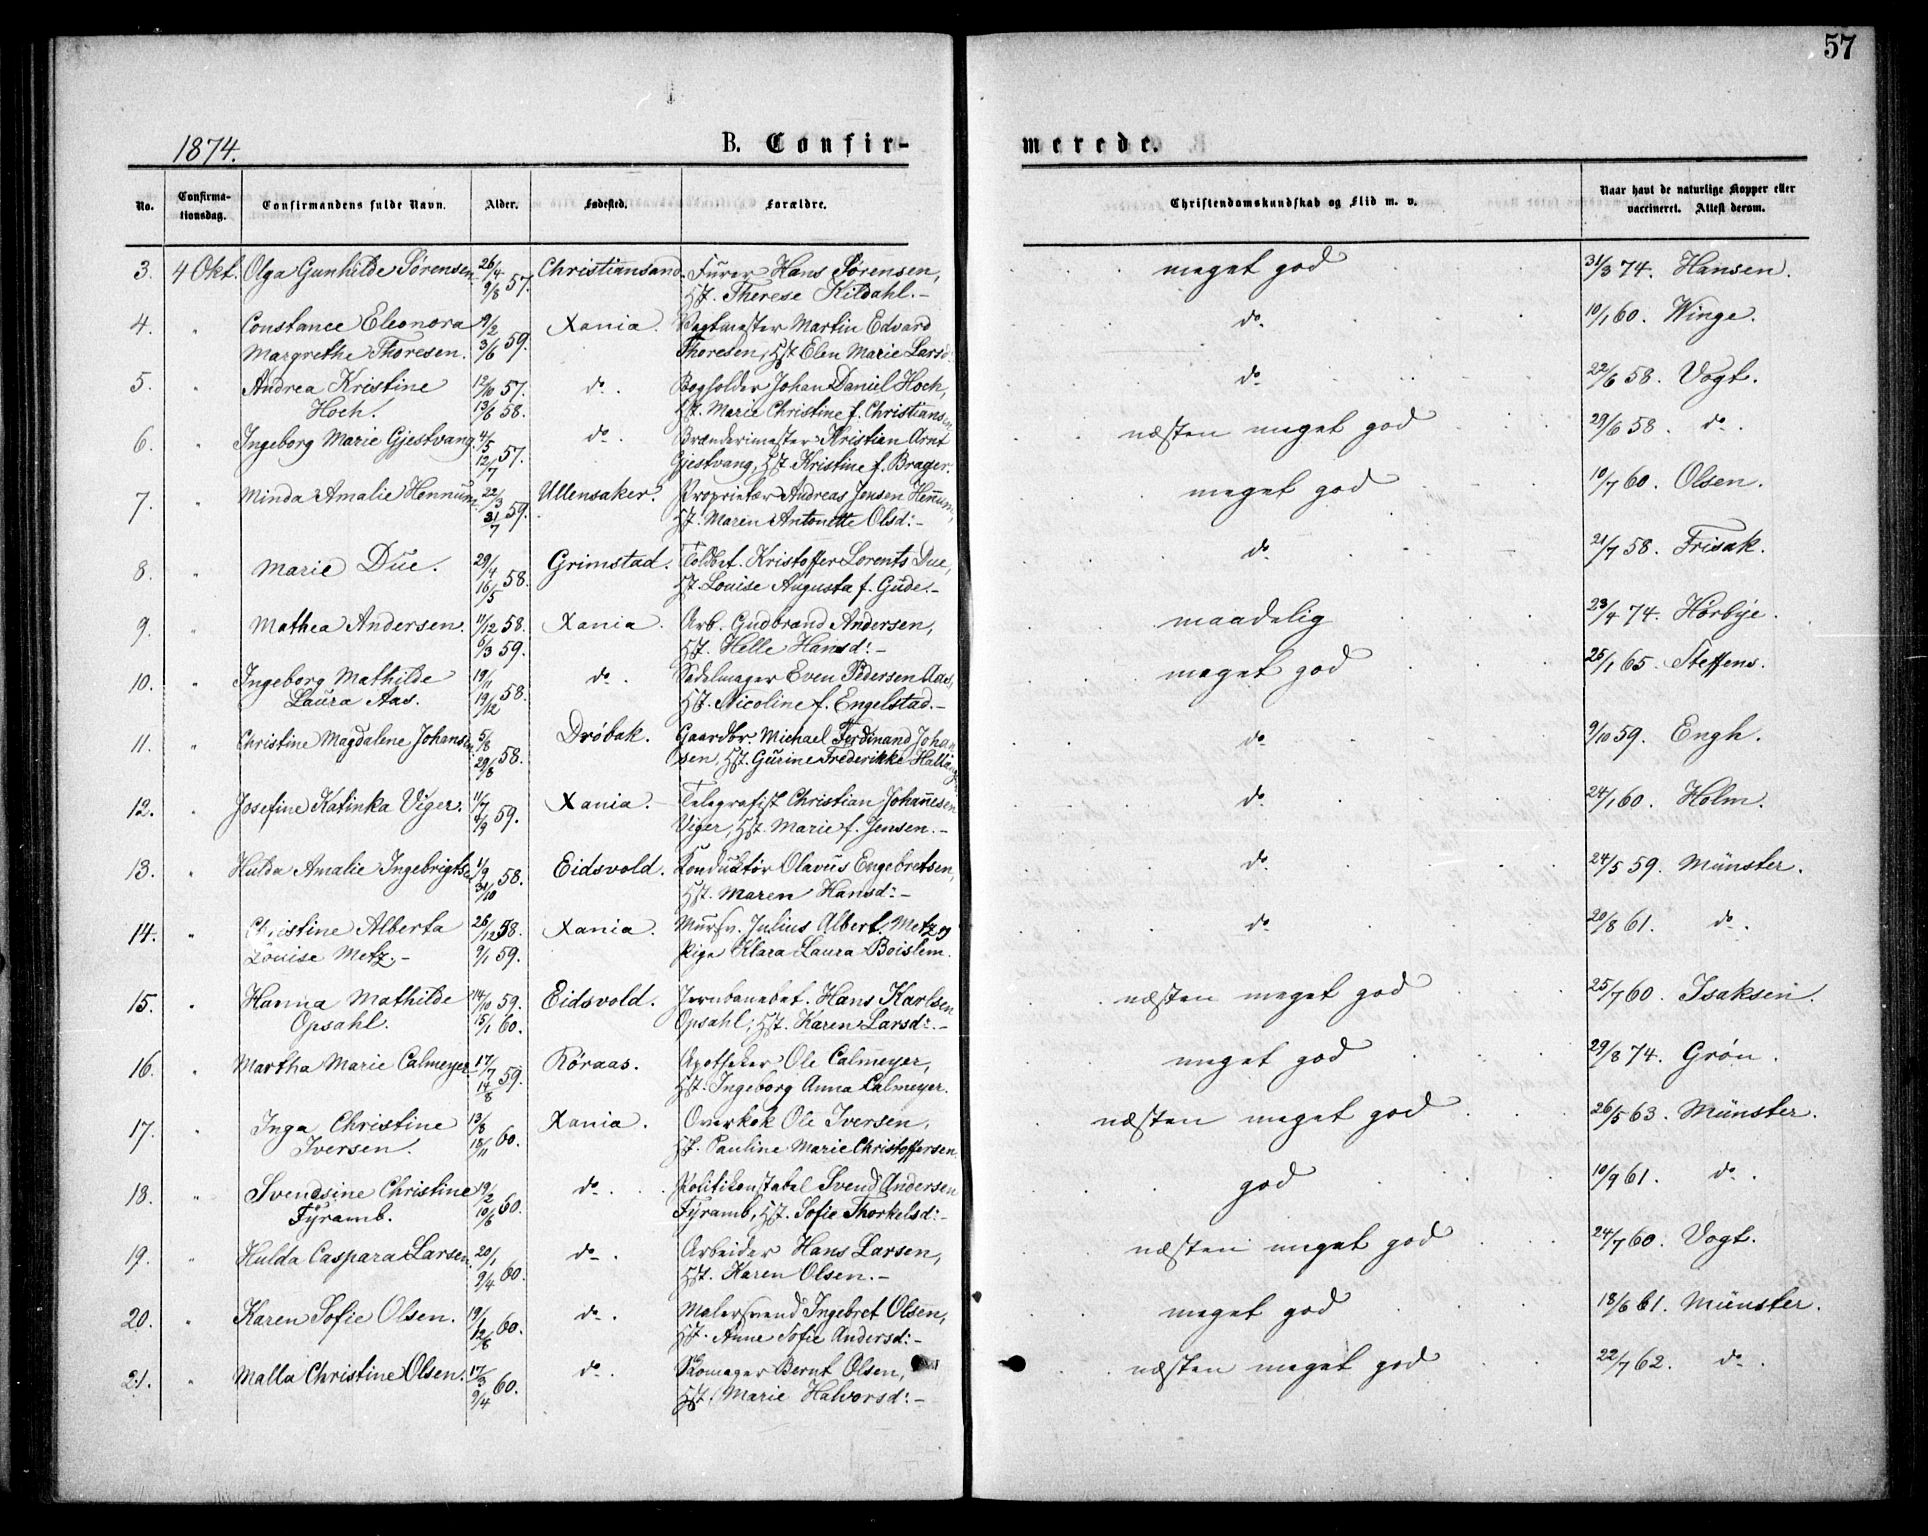 57
1874.
B. Confir-
merede.
No.
Confirma-
tionsdag.
Confirmandens fulde Navn.
Alder.
Fødested.
Forældre.
Christendomskundskab og Flid m. v.
Naar havt de naturlige Kopper eller
vaccineret. Attest derom.
3. 4 Okt. Olga Gunhilde Sørensen. 26/4 57. Christiansand. Furer Hans Sørensen, meget god 31/3 74. Hansen.
9/8 Hst. Therese Kildahl.-
4. " Constance Eleonora 9/2 59. Xania. Vagtmester Martin Edvard do 10/1 60. Winge.
Margrethe Thoresen. 3/6 Thoresen, Hst Elen Marie Larsd:
5. " Andrea Kristine 12/10 57. do. Bogholder Johan Daniel Hoch, do 22/6 58. Vogt.
Hoch. 13/6 58. Hst. Marie Christine f. Christiansen
6. " Ingeborg Marie Gjestvang. 4/5 57. do. Brænderimester Kristian Arnt næsten meget god 29/6 58. do.
12/7 Gjestvang, Hst Kristine f. Brager.
7. " Minda Amalie Hennum. 22/3 59. Ullensaker. Proprietær Andreas Jensen Hennum, meget god 10/7 60. Olsen.
31/7 Hst. Maren Antonette Olsd:-
8. " Marie Due. 29/4 58. Grimstad. Toldbet. Kristoffer Lorents Due, do 21/7 58. Frisak.
16/5 Hst. Louise Augusta f. Gude.-
9. " Mathea Andersen. 11/12 58. Xania. Arb. Gudbrand Andersen, maadelig 23/4 74. Hørbye.
6/3 59. Hst. Helle Hansd:-
10. " Ingeborg Mathilde 19/11 58. do. Sadelmager Even Pedersen Aas, meget god 25/1 65. Steffens.
Laura Aas. 19/12 Hst. Nicoline f. Engelstad.-
11. " Christine Magdalene Johansen. 5/8 58. Drøbak. Gaardbr. Michael Ferdinand Johan- do 9/10 59. Engh.
29/8 sen, Hst. Gurine Frederikke
12. " Josefine Katinka Viger. 11/7 59. Xania.- Telegrafist Christian Johannesen do 24/1 60. Holm.
4/9 Viger, Hst. Marie f. Jensen.-
13. " Hulda Amalie Ingebrigtsen 1/9 58. Eidsvold. Konduktør Olavus Engebretsen, do 24/5 59. Münster.
31/10 Hst. Maren Hansd:-
14. " Christine Alberta 26/12 58. Xania. Mursv. Julius Albert Metz og do 20/8 61. do.
Louise Metz.- 9/1 59. Pige Klara Laura Boislem.
15. " Hanna Mathilde 14/10 59. Eidsvold. Jernbanebet. Hans Karlsen næsten meget god 25/7 60. Isaksen.
Opsahl. 15/1 60. Opsahl, Hst. Karen Larsd:-
16. " Martha Marie Calmeyer. 17/7 59. Røraas. Apotheker Ole Calmeyer, meget god 29/8 74. Grøn.
14/8 Hst. Ingeborg Anna Calmeyer.
17. " Inga Christine 13/8 60. Xania. Overkok Ole Iversen, næsten meget god 26/5 63. Münster.
Iversen. 18/11 Hst. Pauline Marie Christoffersen.
18. " Svendsine Christine 19/2 60. do. Politikonstabel Svend Andersen god 10/9 61. do.
Fyramb. 10/6 Fyramb, Hst. Sofie Thorkelsd:-
19. " Hulda Caspara Larsen. 20/1 60. do. Arbeider Hans Larsen, næsten meget god 24/7 60. Vogt.
9/4 Hst. Karen Olsen.-
20. " Karen Sofie Olsen. 19/1 60. do. Malersvend Ingebret Olsen, meget god 18/6 61. Münster.
12/6 Hst. Anne Sofie Andersd:-
21. " Malla Christine Olsen. 17/3 60. do. Skomager Bernt Olsen, næsten meget god 22/7 62. do.
9/4 Hst. Marie Halvorsd:-